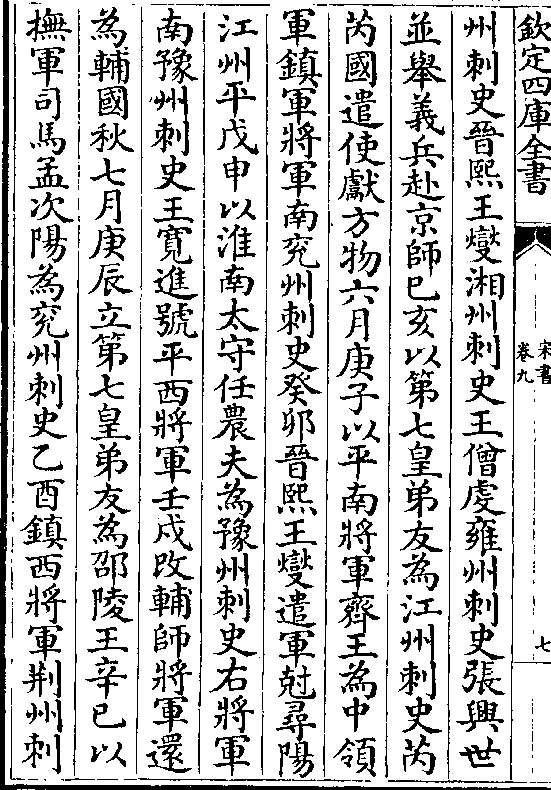 欽定四庫全書
宋書
卷九
七
州刺史晉熙王燮湘州刺史王僧虔雍州刺史張興世
並舉義兵赴京師巳亥以第七皇弟友為江州刺史芮
芮國遣使獻方物六月庚子以平南將軍齊王為中領
軍鎮軍將軍南兖州刺史癸卯晉熙王燮遣軍尅尋陽
江州平戊申以淮南太守任農夫為豫州刺史右將軍
南豫州刺史王寛進號平西將軍壬戌改輔師將軍還
為輔國秋七月庚辰立第七皇弟友為邵陵王辛巳以
撫軍司馬孟次陽為兖州刺史乙酉鎮西將軍荆州刺